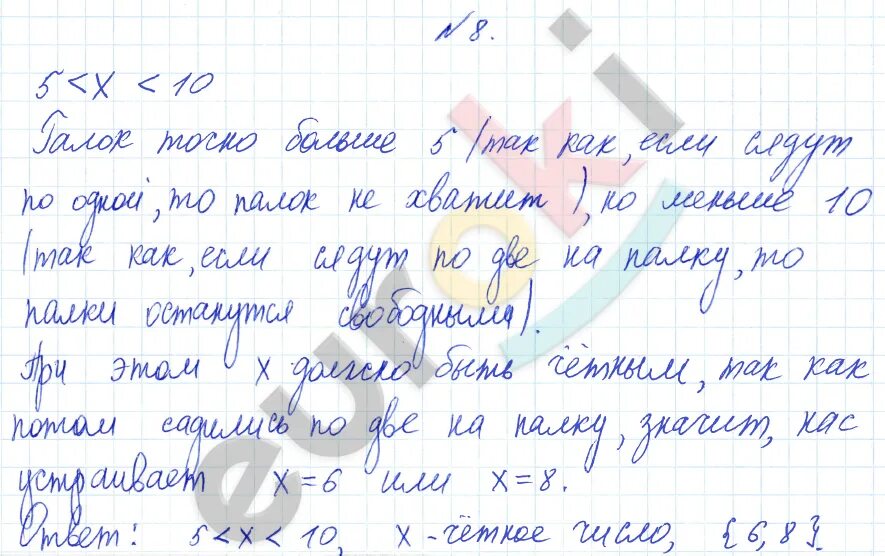 № 8.
5 < x < 10
Галок точно больше 5 (так как, если сядут
по одной, то палок не хватит), но меньше 10
(так как, если сядут по две на палку, то
палки останутся свободными).
При этом x должно быть чётным, так как
потом садились по две на палку, значит, нас
устраивает x = 6 или x = 8.
Ответ: 5 < x < 10, x - чётное число, {6, 8}.
euroki